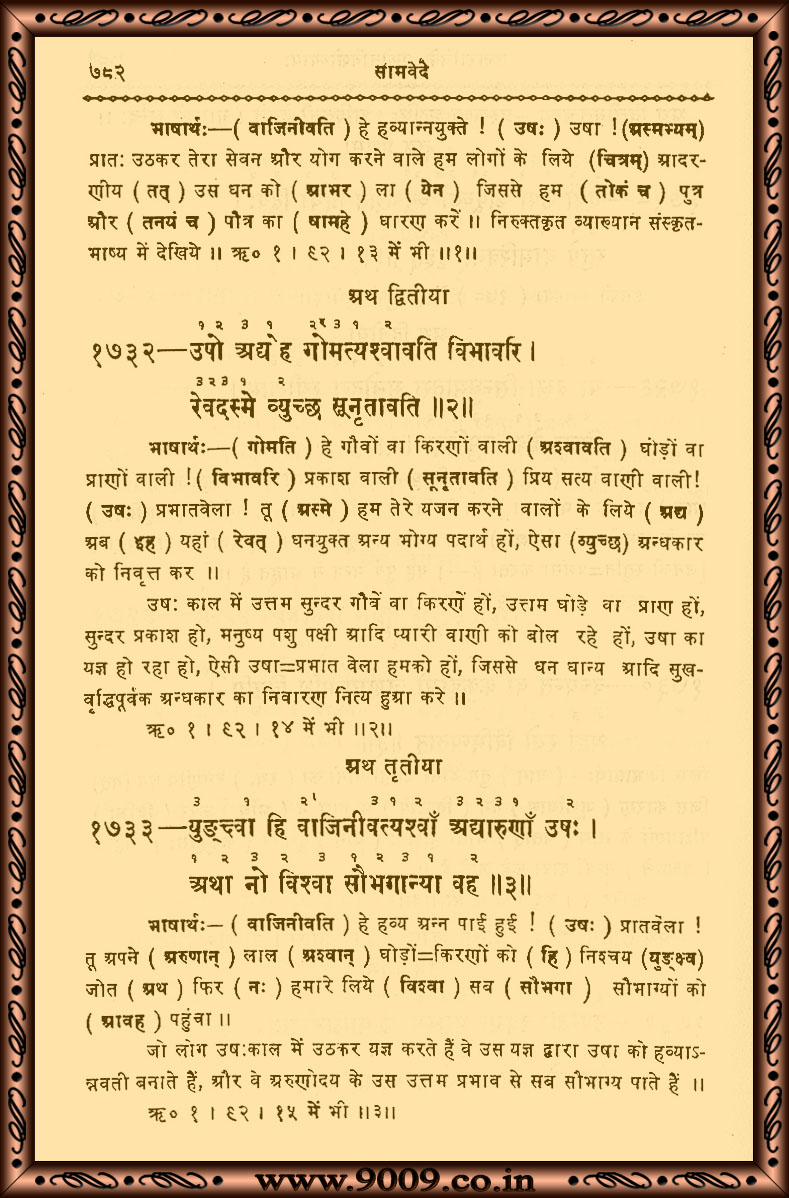 ७८२ सामवेदे
भाषार्थः—( वाजिनीवति ) हे हव्यान्नयुक्ते ! ( उषः ) उषा ! (अस्मभ्यम्)
प्रातः उठकर तेरा सेवन और योग करने वाले हम लोगों के लिये (चित्रम्) आदर-
णीय ( तत् ) उस धन को ( आभर ) ला ( येन ) जिससे हम ( तोकं च ) पुत्र
और ( तनयं च ) पौत्र का ( धामहे ) धारण करें ॥ निरुक्तकृत व्याख्यान संस्कृत-
भाष्य में देखिये ॥ ऋ० १ । ९२ । १३ में भी ॥१॥
अथ द्वितीया
१ २ ३ १ २र३ १ २
१७३२—उपो अद्येह गोमत्यश्वावति विभावरि ।
३२३ १ २
रेवदस्मे व्युच्छ सूनृतावति ॥२॥
भाषार्थः—( गोमति ) हे गौवों वा किरणों वाली ( अश्वावति ) घोड़ों वा
प्राणों वाली !( विभावरि ) प्रकाश वाली ( सूनृतावति ) प्रिय सत्य वाणी वाली!
( उषः ) प्रभातवेला ! तू ( अस्मे ) हम तेरे यजन करने वालों के लिये ( अद्य )
अब ( इह ) यहां ( रेवत् ) धनयुक्त अन्य भोग्य पदार्थ हों, ऐसा (व्युच्छ) अन्धकार
को निवृत्त कर ॥
उषः काल में उत्तम सुन्दर गौवें वा किरणें हों, उत्ताम घोड़े वा प्राण हों,
सुन्दर प्रकाश हो, मनुष्य पशु पक्षी आदि प्यारी वाणी को बोल रहे हों, उषा का
यज्ञ हो रहा हो, ऐसी उषा=प्रभात वेला हमको हों, जिससे धन धान्य आदि सुख-
वृद्धिपूर्वक अन्धकार का निवारण नित्य हुआ करे ॥
ऋ० १ । ९२ । १४ में भी ॥२॥
अथ तृतीया
३ १ २ ३ १ २ ३ २ ३ १ २
१७३३—युङ्क्ष्वा हि वाजिनीवत्यश्वाँ अद्यारुणाँ उषः ।
१ २ ३ २ ३ १ २ ३ १ २
अथा नो विश्वा सौभगान्या वह ॥३॥
भाषार्थः— ( वाजिनीवति ) हे हव्य अन्न पाई हुई ! ( उषः ) प्रातवेला !
तू अपने ( अरुणान् ) लाल ( अश्वान् ) घोड़ों=किरणों को ( हि ) निश्चय (युङ्क्ष्व)
जोत ( अथ ) फिर ( नः ) हमारे लिये ( विश्वा ) सब ( सौभगा ) सौभाग्यों को
( आवह ) पहुंचा ॥
जो लोग उषःकाल में उठकर यज्ञ करते हैं वे उस यज्ञ द्वारा उषा को हव्याऽ-
न्नवती बनाते हैं, और वे अरुणोदय के उस उत्तम प्रभाव से सब सौभाग्य पाते हैं ॥
ऋ० १ । ९२ । १५ में भी ॥३॥
www.9009.co.in